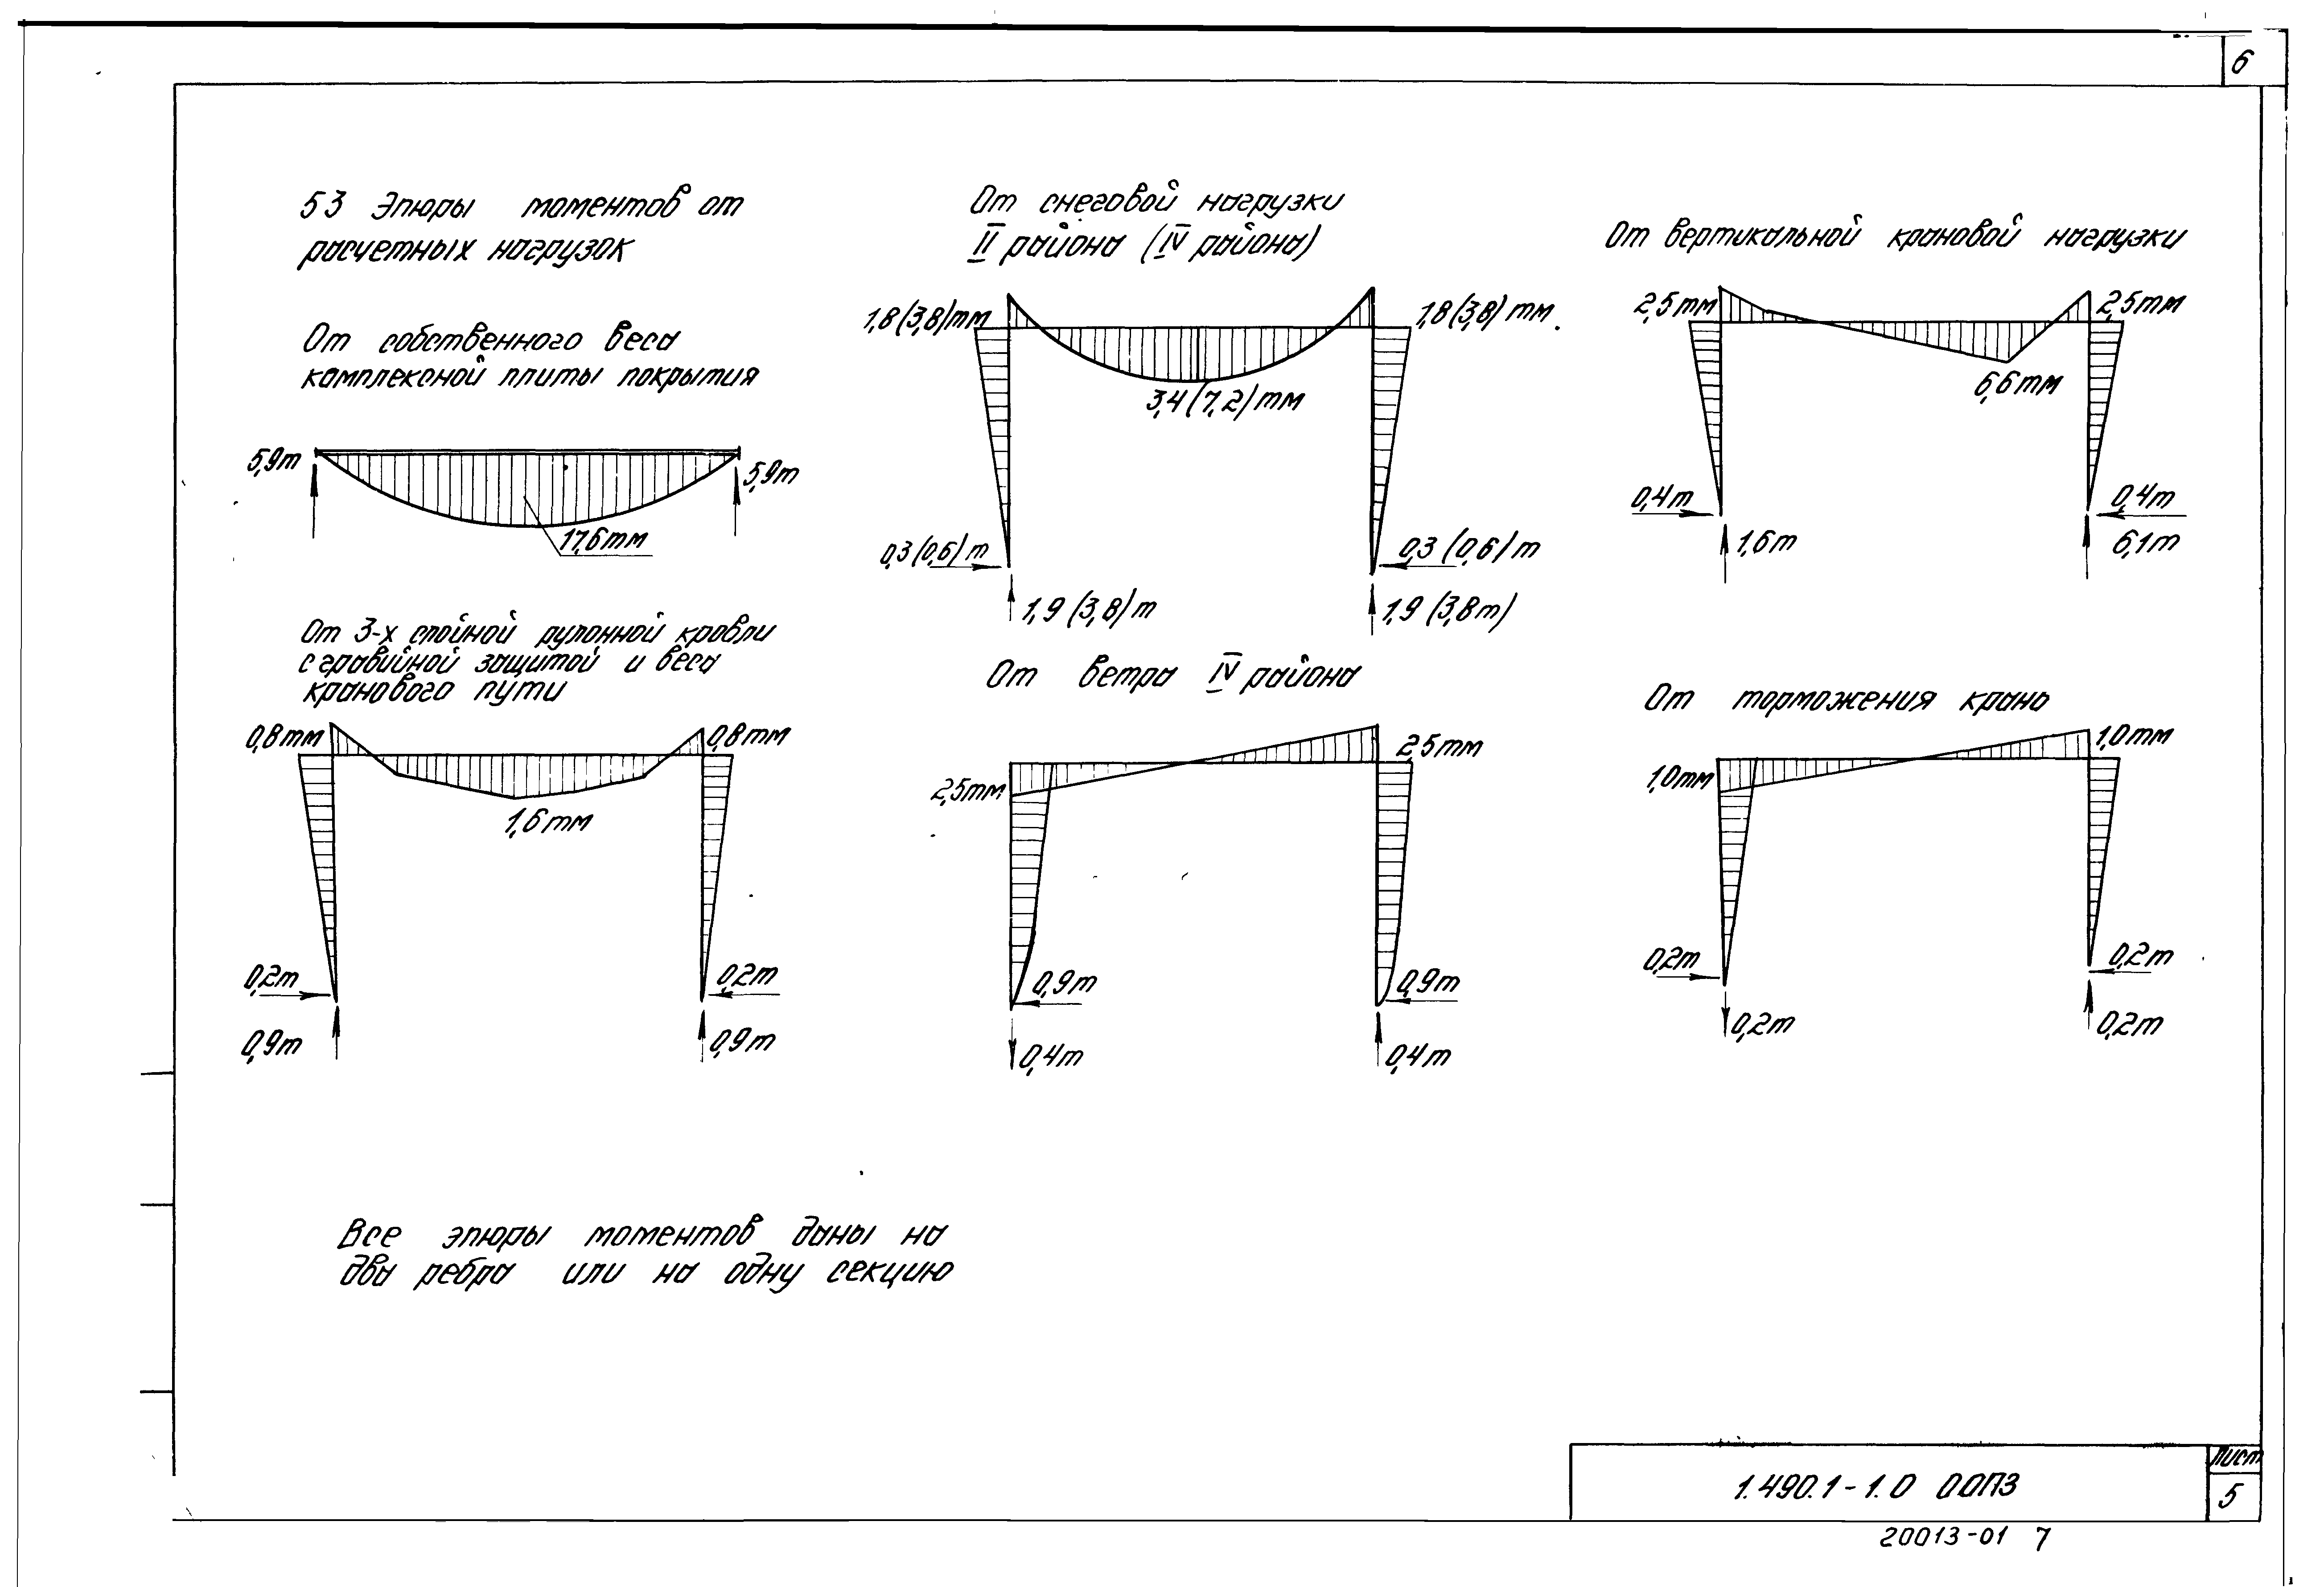 6
5.3 Эпюры моментов от
расчетных нагрузок
От собственного веса
комплексной плиты покрытия
5,9т
5,9т
17,6тм
От 3-х слойной рулонной кровли
с гравийной защитой и веса
кранового пути
0,8тм
0,8тм
1,6тм
0,2т
0,2т
0,9т
0,9т
От снеговой нагрузки
II района (IV района)
1,8(3,8)тм
1,8(3,8)тм
3,4(7,2)тм
0,3(0,6)т
0,3(0,6)т
1,9(3,8)т
1,9(3,8т)
От ветра IV района
2,5тм
2,5тм
0,9т
0,9т
0,4т
0,4т
От вертикальной крановой нагрузки
2,5тм
2,5тм
6,6тм
0,4т
0,4т
1,6т
6,1т
От торможения крана
1,0тм
1,0тм
0,2т
0,2т
0,2т
0,2т
Все эпюры моментов даны на
два ребра или на одну секцию
1.490.1-1.0 00ПЗ
Лист
5
20013-01 7